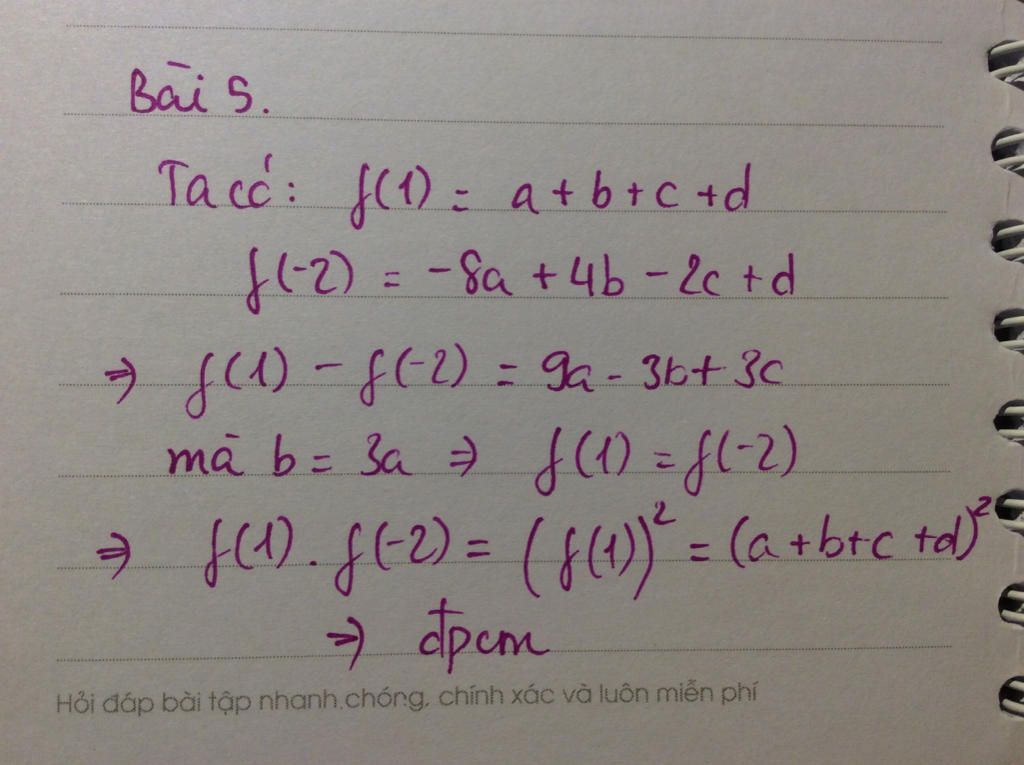 Bài 5.
Ta có: f(1) = a + b + c + d
f(-2) = -8a + 4b - 2c + d
⇒ f(1) - f(-2) = 9a - 3b + 3c
mà b = 3a ⇒ f(1) = f(-2)
⇒ f(1) . f(-2) = (f(1))² = (a + b + c + d)²
⇒ đpcm
Hỏi đáp bài tập nhanh chóng, chính xác và luôn miễn phí